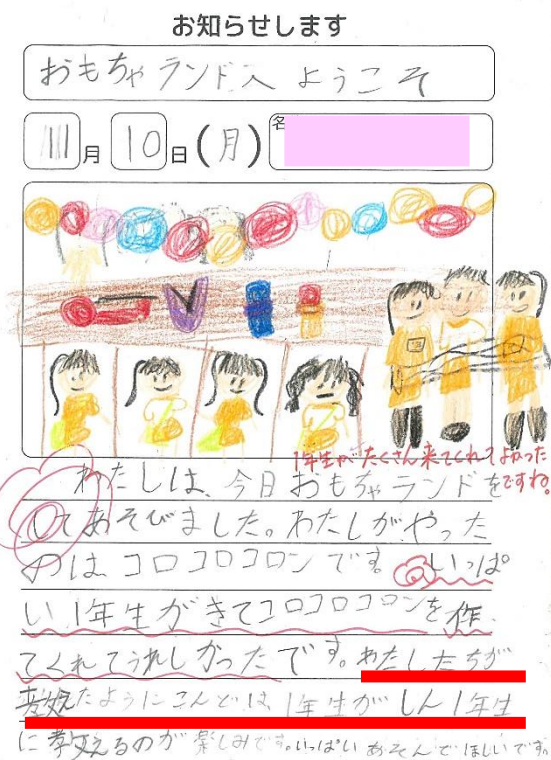 お知らせします
おもちゃランドへ ようこそ
11月10日(月) 名
1年生がたくさん来てくれてよかった
ですね。
わたしは、今日おもちゃランドを
してあそびました。わたしがやった
のは、コロコロコロンです。いっぱ
い1年生がきてコロコロコロンを作っ
てくれてうれしかったです。わたしたちが
教えたようにこんどは、1年生がしん1年生
に教えるのが楽しみです。いっぱいあそんでほしいです。